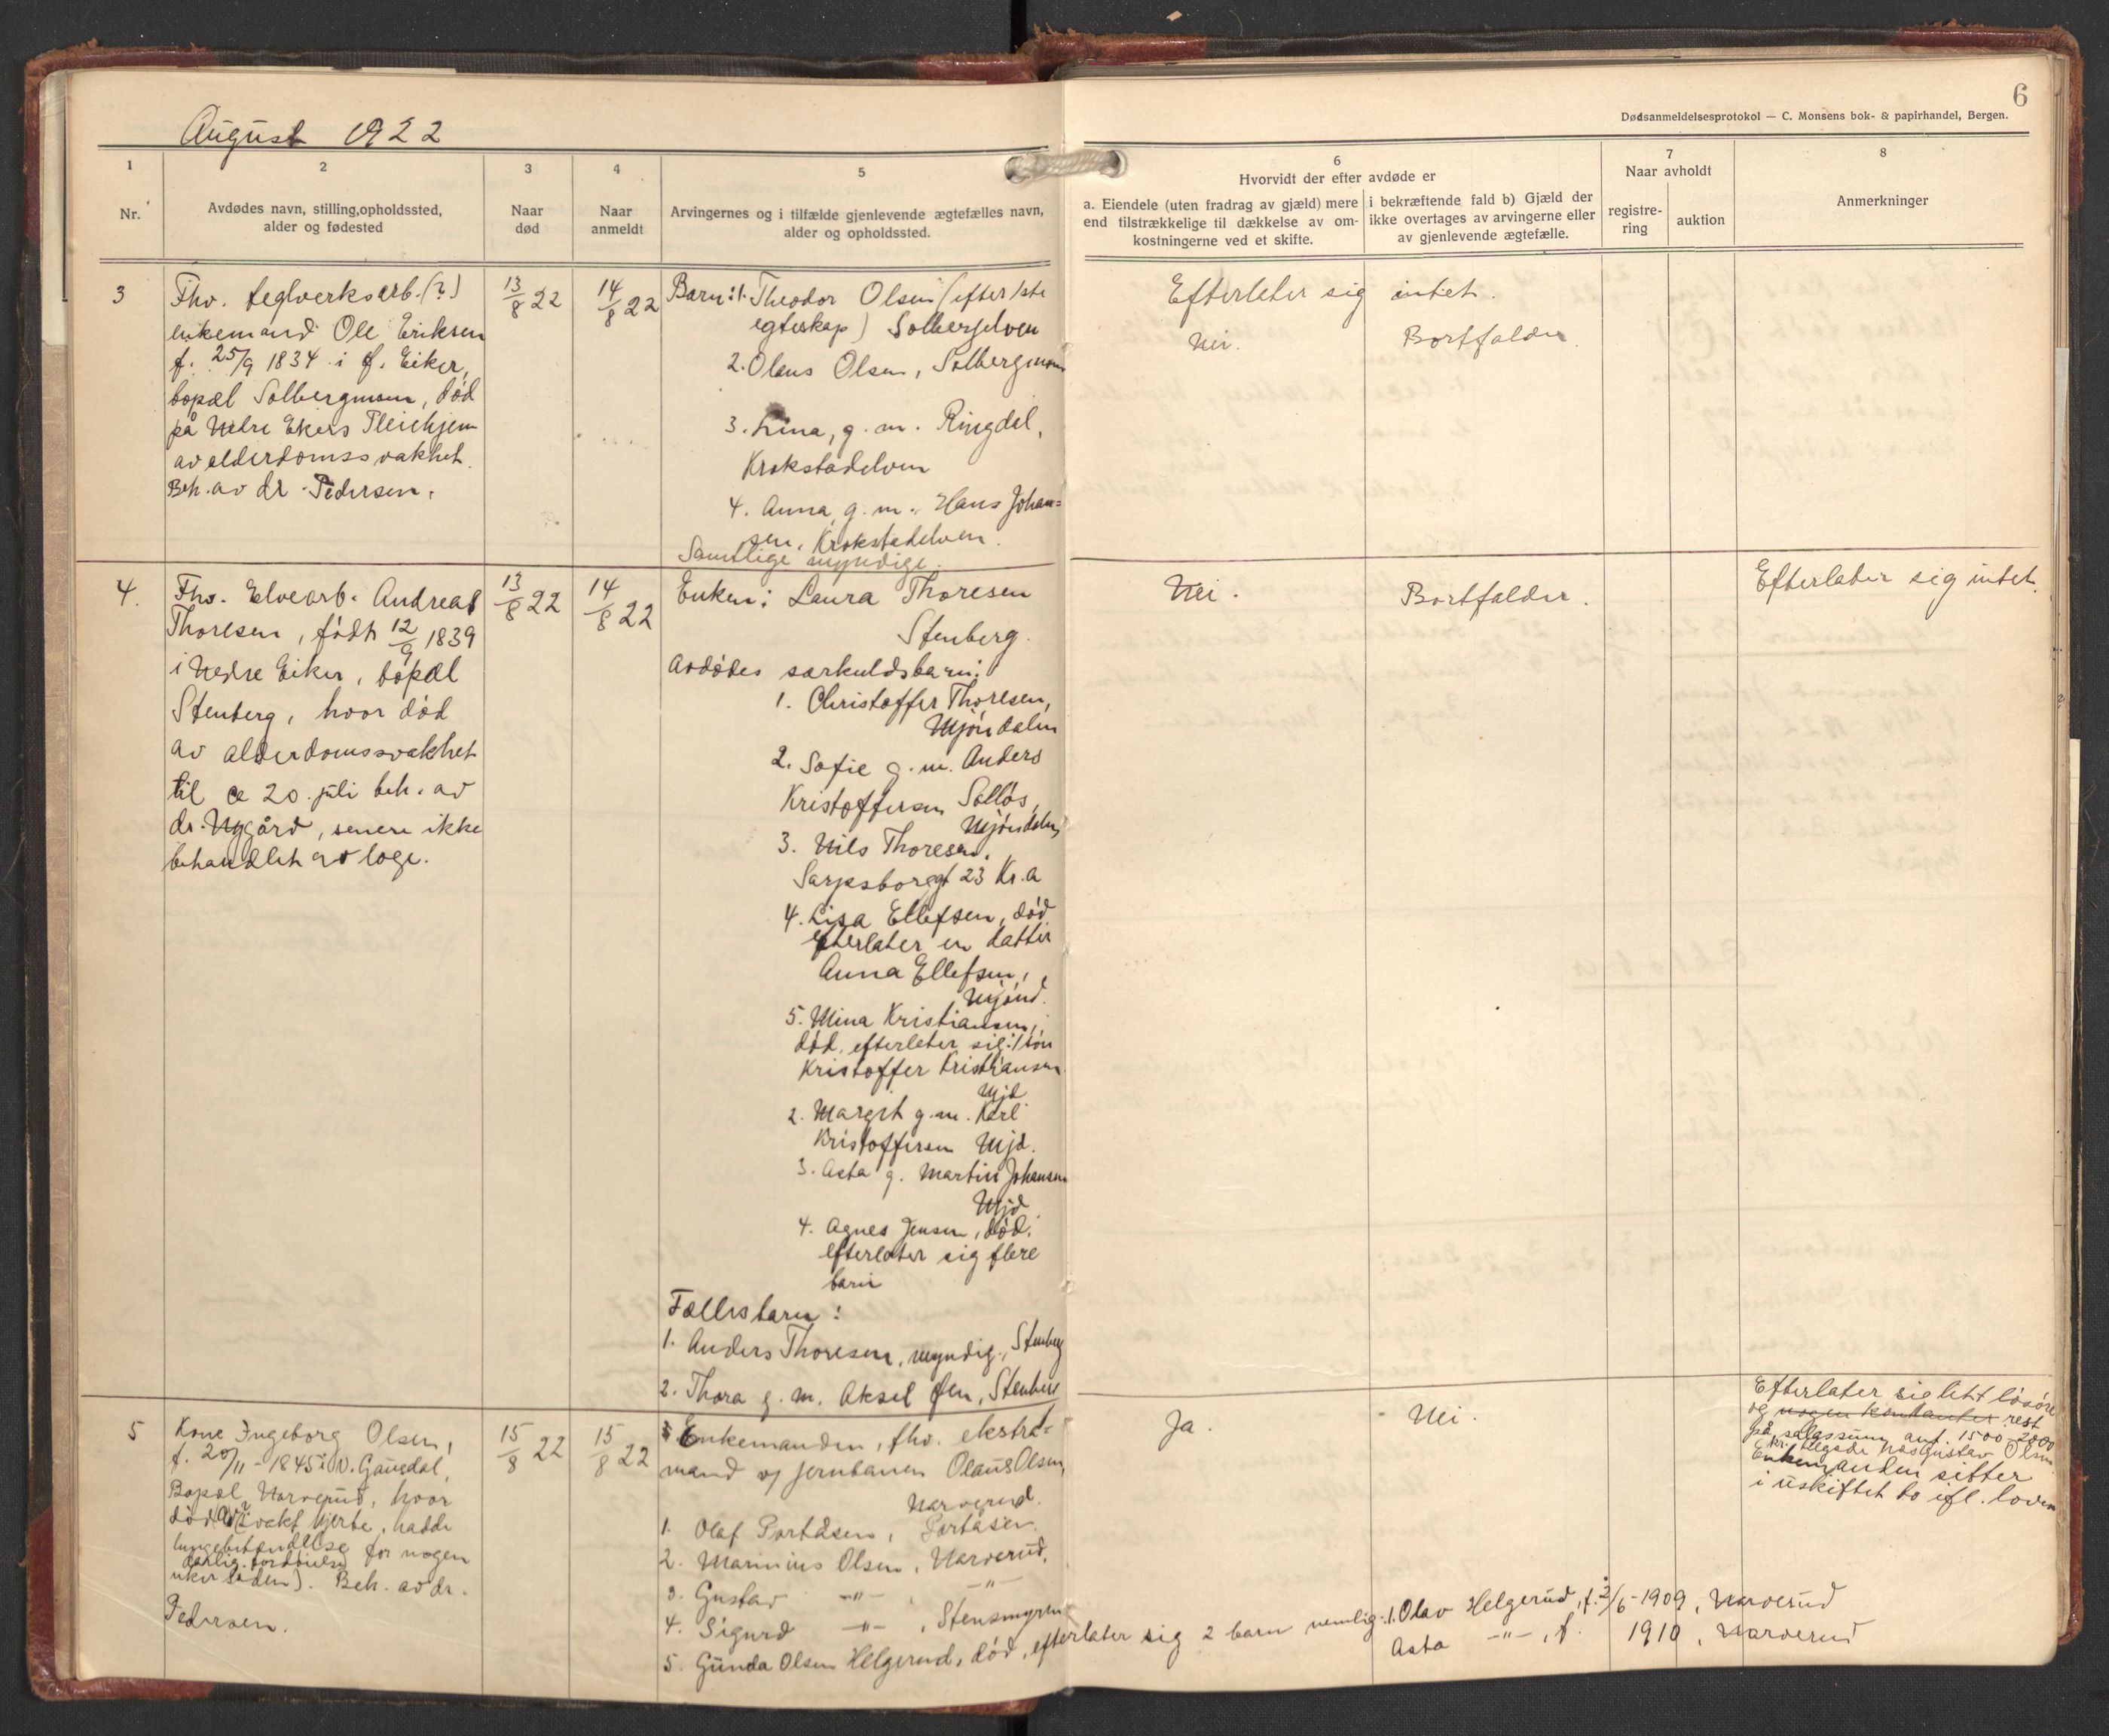 August 1922
6
Dødsanmeldelsesprotokol — C. Monsens bok- & papirhandel, Bergen.
1
Nr.
2
Avdødes navn, stilling, opholdssted,
alder og fødested
3
Naar
død
4
Naar
anmeldt
5
Arvingernes og i tilfælde gjenlevende ægtefælles navn,
alder og opholdssted.
6
Hvorvidt der efter avdøde er
a. Eiendele (uten fradrag av gjæld) mere
end tilstrækkelige til dækkelse av om-
kostningerne ved et skifte.
i bekræftende fald b) Gjæld der
ikke overtages av arvingerne eller
av gjenlevende ægtefælle.
7
Naar avholdt
registre-
ring
auktion
8
Anmerkninger
3
Fhv. teglverksarb. (?)
enkemand Ole Eriksen
f. 25/9 1834 i Ø. Eiker,
bopæl Solbergmoen, død
på Nedre Ekers Pleiehjem
av alderdomssvakhet.
Beh. av dr. Pedersen.
13/8 22
14/8 22
Barn: 1. Theodor Olsen (efter 1ste
egteskap) Solbergelven
2. Olaus Olsen, Solbergmoen
3. Lina, g. m. Ringdal,
Krokstadelven
4. Anna, g. m. Hans Johan=
sen, Krokstadelven.
Samtlige myndige.
Efterlater sig intet.
Nei.
Bortfalder.
4.
Fhv. Elvearb. Andreas
Thoresen, født 12/9 1839
i Nedre Eiker, bopæl
Stenberg, hvor død
av alderdomssvakhet
til ca 20. juli beh. av
dr. Nygård, senere ikke
behandlet av læge.
13/8 22
14/8 22
Enken: Laura Thoresen
Stenberg.
Avdødes særkuldsbarn:
1. Christoffer Thoresen,
Mjøndalen
2. Sofie g. m. Anders
Kristoffersen Solløs,
Mjøndalen
3. Nils Thoresen,
Sarpsborggt 23 Kr.a
4. Lisa Ellefsen, død
efterlater en datter
Anna Ellefsen,
Mjønd.
5. Mina Kristiansen,
død, efterlater sig: 1 søn
Kristoffer Kristiansen
Mjd.
2. Margit g. m. Karl
Kristoffersen Mjd.
3. Asta g. Martin Johansen
Mjd.
4. Agnes Jensen, død.
efterlater sig flere
barn
Fællesbarn:
1. Anders Thoresen, myndig, Stenberg
2. Thora g. m. Aksel Øen, Stenberg
Nei.
Bortfalder.
Efterlater sig intet.
5
Kone Ingeborg Olsen,
f. 20/11 - 1845 i V. Gausdal,
Bopæl Narverud, hvor
død av svakt hjerte, hadde
lungebetændelse for nogen
uker siden). Beh. av dr.
Pedersen.
15/8 22
15/8 22
Enkemanden, fhv. ekstra=
mand v/ jernbanen Olaus Olsen,
Narverud.
1. Olaf Portåsen, Portåsen.
2. Marinius Olsen, Narverud.
3. Gustav —"— —"—
4. Sigurd —"—, Stensmyren
5. Gunda Olsen Helgerud, død, efterlater sig 2 barn nemlig: 1. Olav Helgerud, f. 2/6 - 1909, Narverud
Asta —"—, f. 1910, Narverud
Ja.
Nei.
Efterlater sig litt løsøre
og nogen kontanter rest
på salgssum ant. 1500-2000
kr. tilgode hos Gustav Olsen
Enkemanden sitter
i uskiftet bo ifl. loven